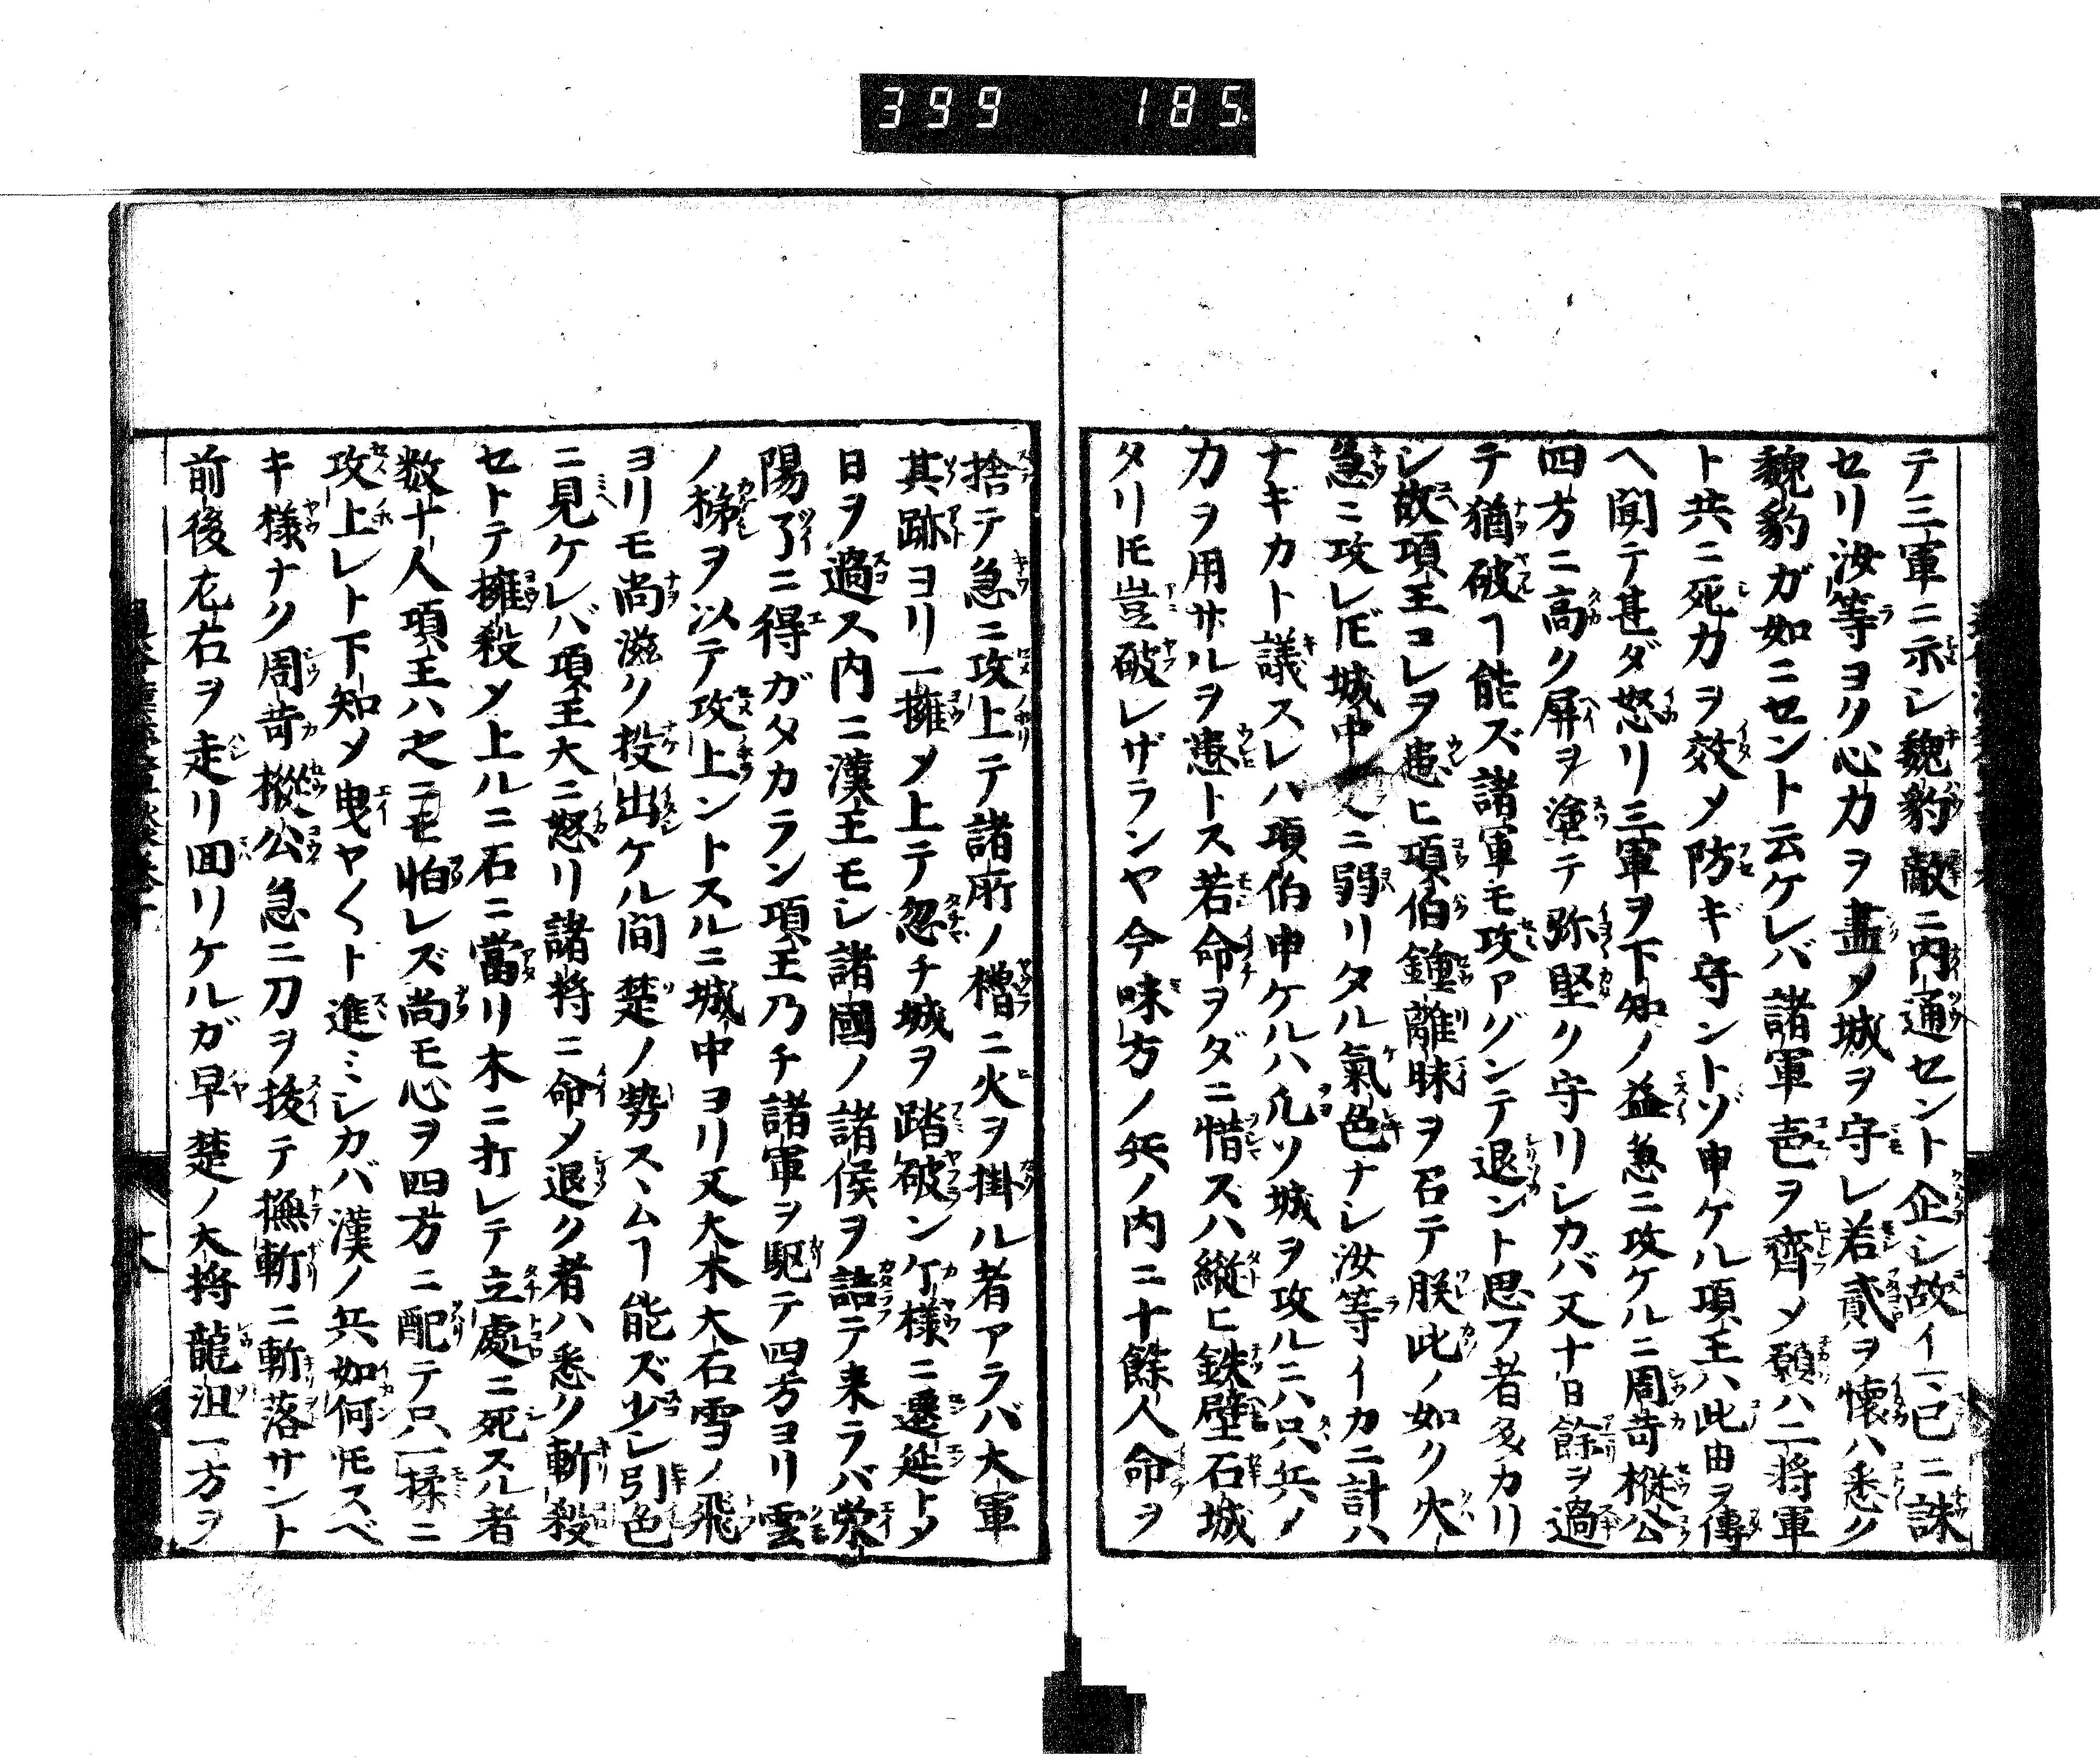 399 185
テ三軍ニ示シ魏豹敵ニ内通セント企シ故イヽ已ニ誅
セリ汝等ヨク心力ヲ盡メ城ヲ守レ若貳ヲ懐ハ悉ク
魏豹ガ如ニセント云ケレバ諸軍壱ヲ齊メ願ハ二将軍
ト共ニ死力ヲ效メ防ギ守ントゾ申ケル項王ハ此由ヲ傳
ヘ聞テ甚ダ怒リ三軍ヲ下知メ益急ニ攻ケルニ周苛樅公
四方ニ高ク屏ヲ塗テ弥堅ク守リシカバ又十日餘ヲ過
テ猶破ヿ能ズ諸軍モ攻アグンテ退ント思フ者多カリ
シ故項王コレヲ患ヒ項伯鐘離昧ヲ召テ朕此ノ如ク火
急ニ攻レ𪜈城中ニ弱リタル氣色ナシ汝等イカニ計ハ
ナギカト議スレハ項伯申ケルハ凡ソ城ヲ攻ルニハ只兵ノ
力ヲ用サルヲ患トス若命ヲダニ惜スハ縦ヒ鉄壁石城
タリ𪜈豈破レザランヤ今味方ノ兵ノ内ニ十餘人命ヲ
捨テ急ニ攻上テ諸所ノ櫓ニ火ヲ掛ル者アラバ大軍
其跡ヨリ一擁メ上テ忽チ城ヲ踏破ンケ様ニ遷延トメ
日ヲ過ス内ニ漢王モシ諸國ノ諸侯ヲ語テ来ラバ栄
陽了ニ得ガタカラン項王乃チ諸軍ヲ駆テ四方ヨリ雲
ノ梯ヲ以テ攻上ントスルニ城中ヨリ又大木大石雪ノ飛
ヨリモ尚滋ク投出ケル間楚ノ勢スヽムヿ能ズ少シ引色
ニ見ケレバ項王大ニ怒リ諸将ニ命メ退ク者ハ悉ク斬殺
セトテ擁殺メ上ルニ石ニ當リ木ニ打レテ立處ニ死スル者
数十人項王ハ之ニモ怕レズ尚モ心ヲ四方ニ配テ只一揉ニ
攻上レト下知メ曳ヤ〱ト進ミシカバ漢ノ兵如何𪜈スベ
キ様ナク周苛樅公急ニ刀ヲ抜テ撫斬ニ斬落サント
前後左右ヲ走リ回リケルガ早楚ノ大将龍沮一方ヲ